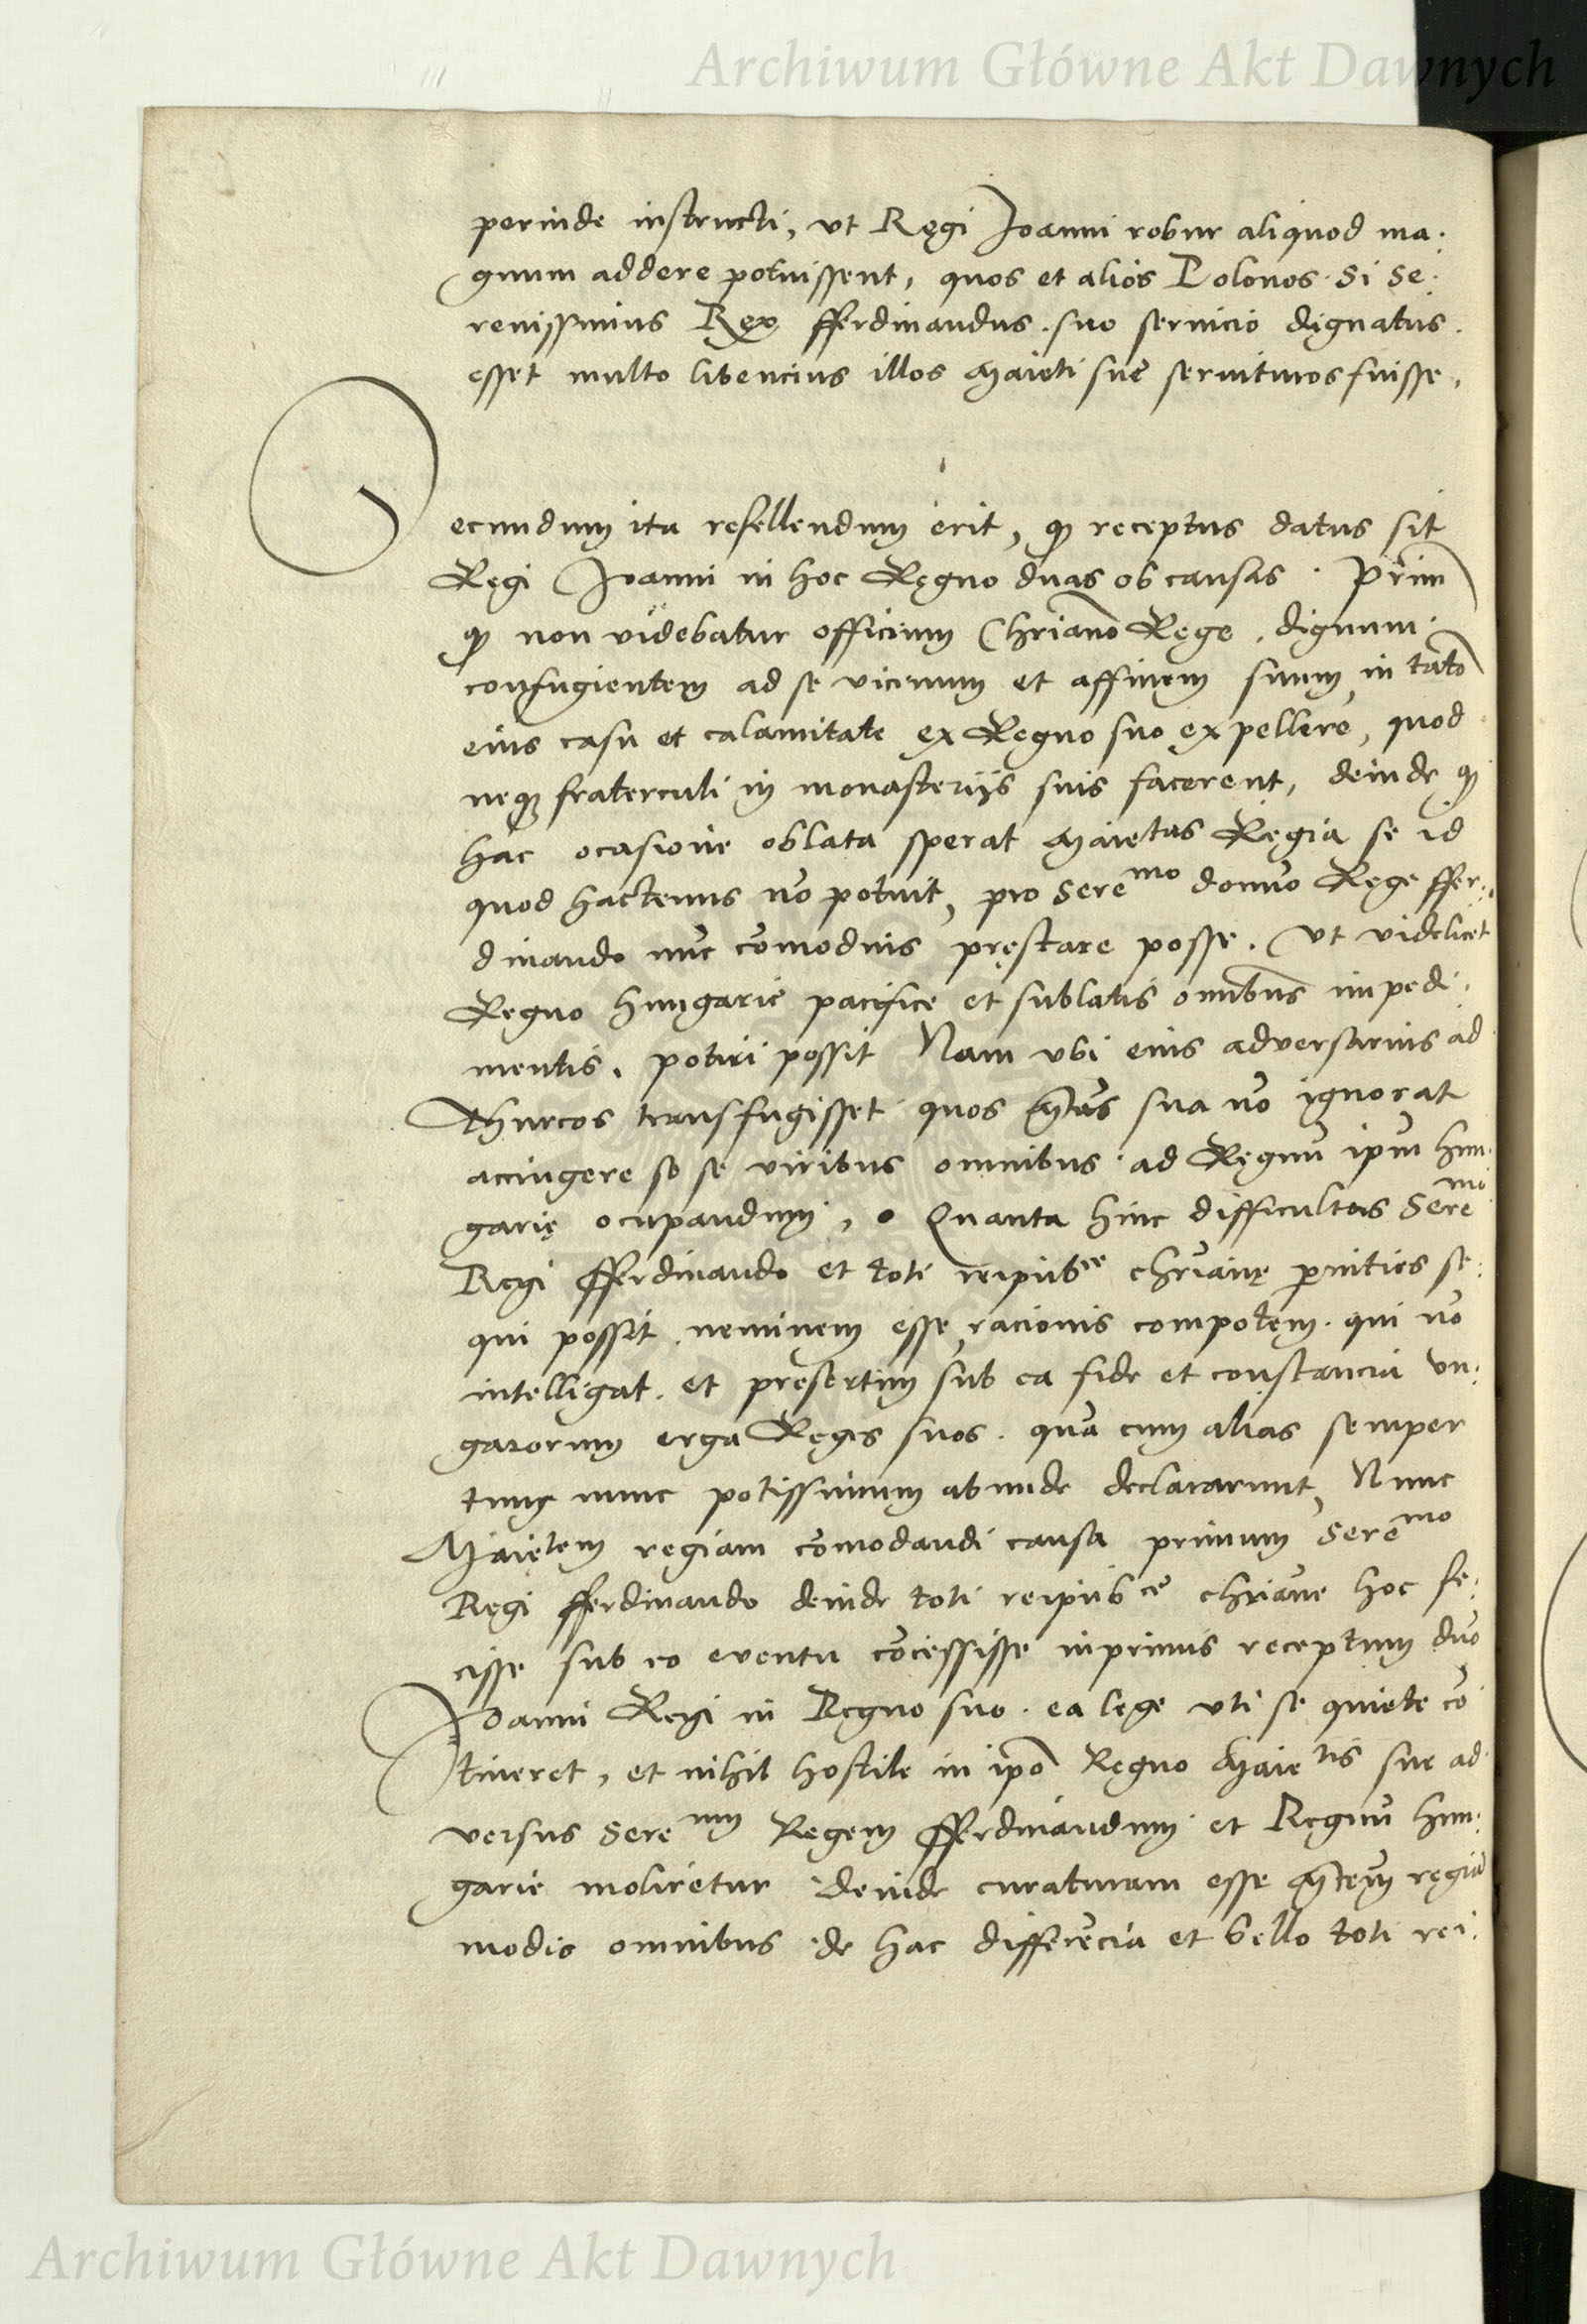 Archiwum Główne Akt Dawnych
perinde instructi, vt Regi Joanni robur aliquod ma.
gnum addere potuissent, quos et alios Polonos. Si Se.
renissimus Rex fferdinandus. suo seruicio dignatus.
esset multo libencius illos Maieti sue seruituros fuisse,
Secundum ita refellendum erit, qȝ receptus datus sit
Regi Joanni in hoc Regno duas ob causas. Prim̄
qȝ non videbatur officium Chriāno Rege, dignum.
confugientem ad se vicinum et affinem suum in tāto
eius casu et calamitate ex Regno suo expellere, quod
neqȝ fraterculi in monasterijs suis facerent, deinde qȝ
hac ocasione oblata sperat Maietas Regia se id
quod hactenus nō potuit, pro Seremo domno Rege ffer.
dinando nūc cōmodius pręstare posse. Vt videlicet
Regno Hungarie pacifice et sublatis omībus impedi.
mentis, potiri possit Nam vbi eius adversarius ad
Thurcos transfugisset quos Mtas sua nō ignorat
accingere se se viribus omnibus ad Regnū ipm Hun.
garię ocupandum, Quanta hinc difficultas Seremo
Regi fferdinando et toti reipubce chrianę pernities se.
qui possit neminem esse racionis compotem. qui nō
intelligat. et presertim sub ea fide et constancia vn.
garorum erga Reges suos. quā cum alias semper
tunc nunc potissimum abunde declararunt, Nunc
Maietem regiam cōmodandi causa primum Seremo
Regi fferdinando deinde toti reipubce chriane hoc fe.
cisse sub eo euentu cōcessisse inprimis receptum dno
Joanni Regi in Regno suo. ea lege vti se quiete cō
tineret, et nihil hostile in ipō Regno Maietis sue ad
versus Serenum Regem fferdinandum et Regnū Hun.
garie moliretur deinde curaturam esse Mtem regiā
modis omnibus de hac differēcia et bello toti rei.
Archiwum Główne Akt Dawnych